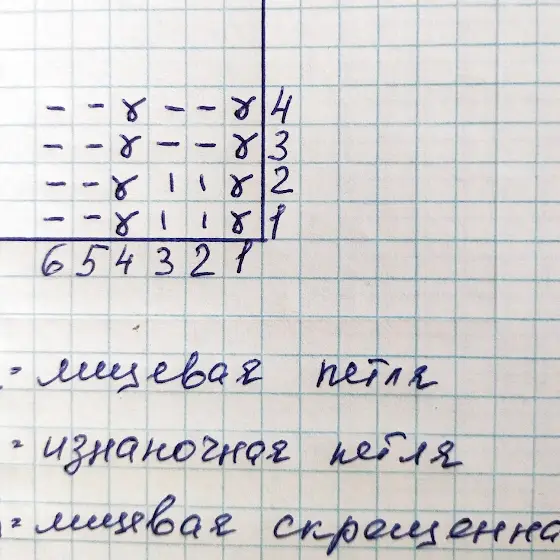 - - ४ - - ४ 4
- - ४ - - ४ 3
- - ४ ı ı ४ 2
- - ४ ı ı ४ 1
6 5 4 3 2 1
= лицевая петля
= изнаночная петля
= лицевая скрещенна